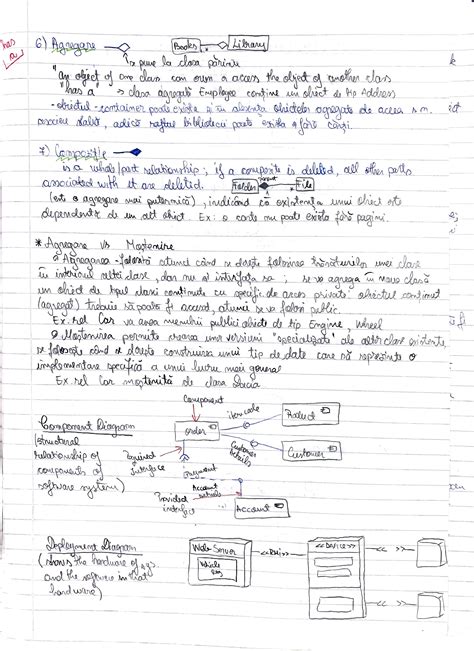 has a
6) Agregare
Books Library
se pune la clasa părinte
"an object of one class can own or access the object of another class
"has a" → clasa agregată Employee conține un obiect de tip Address
- obiectul-container poate exista și în absența obiectelor agregate de aceea s.m.
asociere slabă, adică raftul bibliotecii poate exista și fără cărți.
7) Compoziție
is a whole/part relationship; if a composite is deleted, all other parts
associated with it are deleted. Folder File
(este o agregare mai puternică), indicând că existența unui obiect este
dependentă de un alt obiect. Ex: o carte nu poate exista fără pagini.
* Agregare vs Moștenire
Agregarea - folosită atunci când se dorește folosirea trăsăturilor unei clase
în interiorul altei clase, dar nu și interfața sa; se va agrega în noua clasă
un obiect de tipul clasei conținute cu specific. de acces private; obiectul conținut
(agregat) trebuie să poată fi accesat, atunci se va folosi public.
Ex. rel Car va avea membrii publici obiecte de tip Engine, Wheel
Moștenirea permite crearea unei versiuni "specializate" ale altei clase existente.
se folosește când se dorește construirea unui tip de date care să reprezinte o
implementare specifică a unui lucru mai general
Ex. rel Car moștenită de clasa Dacia
Component
Component Diagram
(structural
relationship of
components of
software system)
order
Item code
Product
Customer details
Customer
Required interface
Payment
Account details
Provided interface
Account
Deployment Diagram
(shows the hardware of sys
and the software in that
hardware)
Web Server
<<Device>>